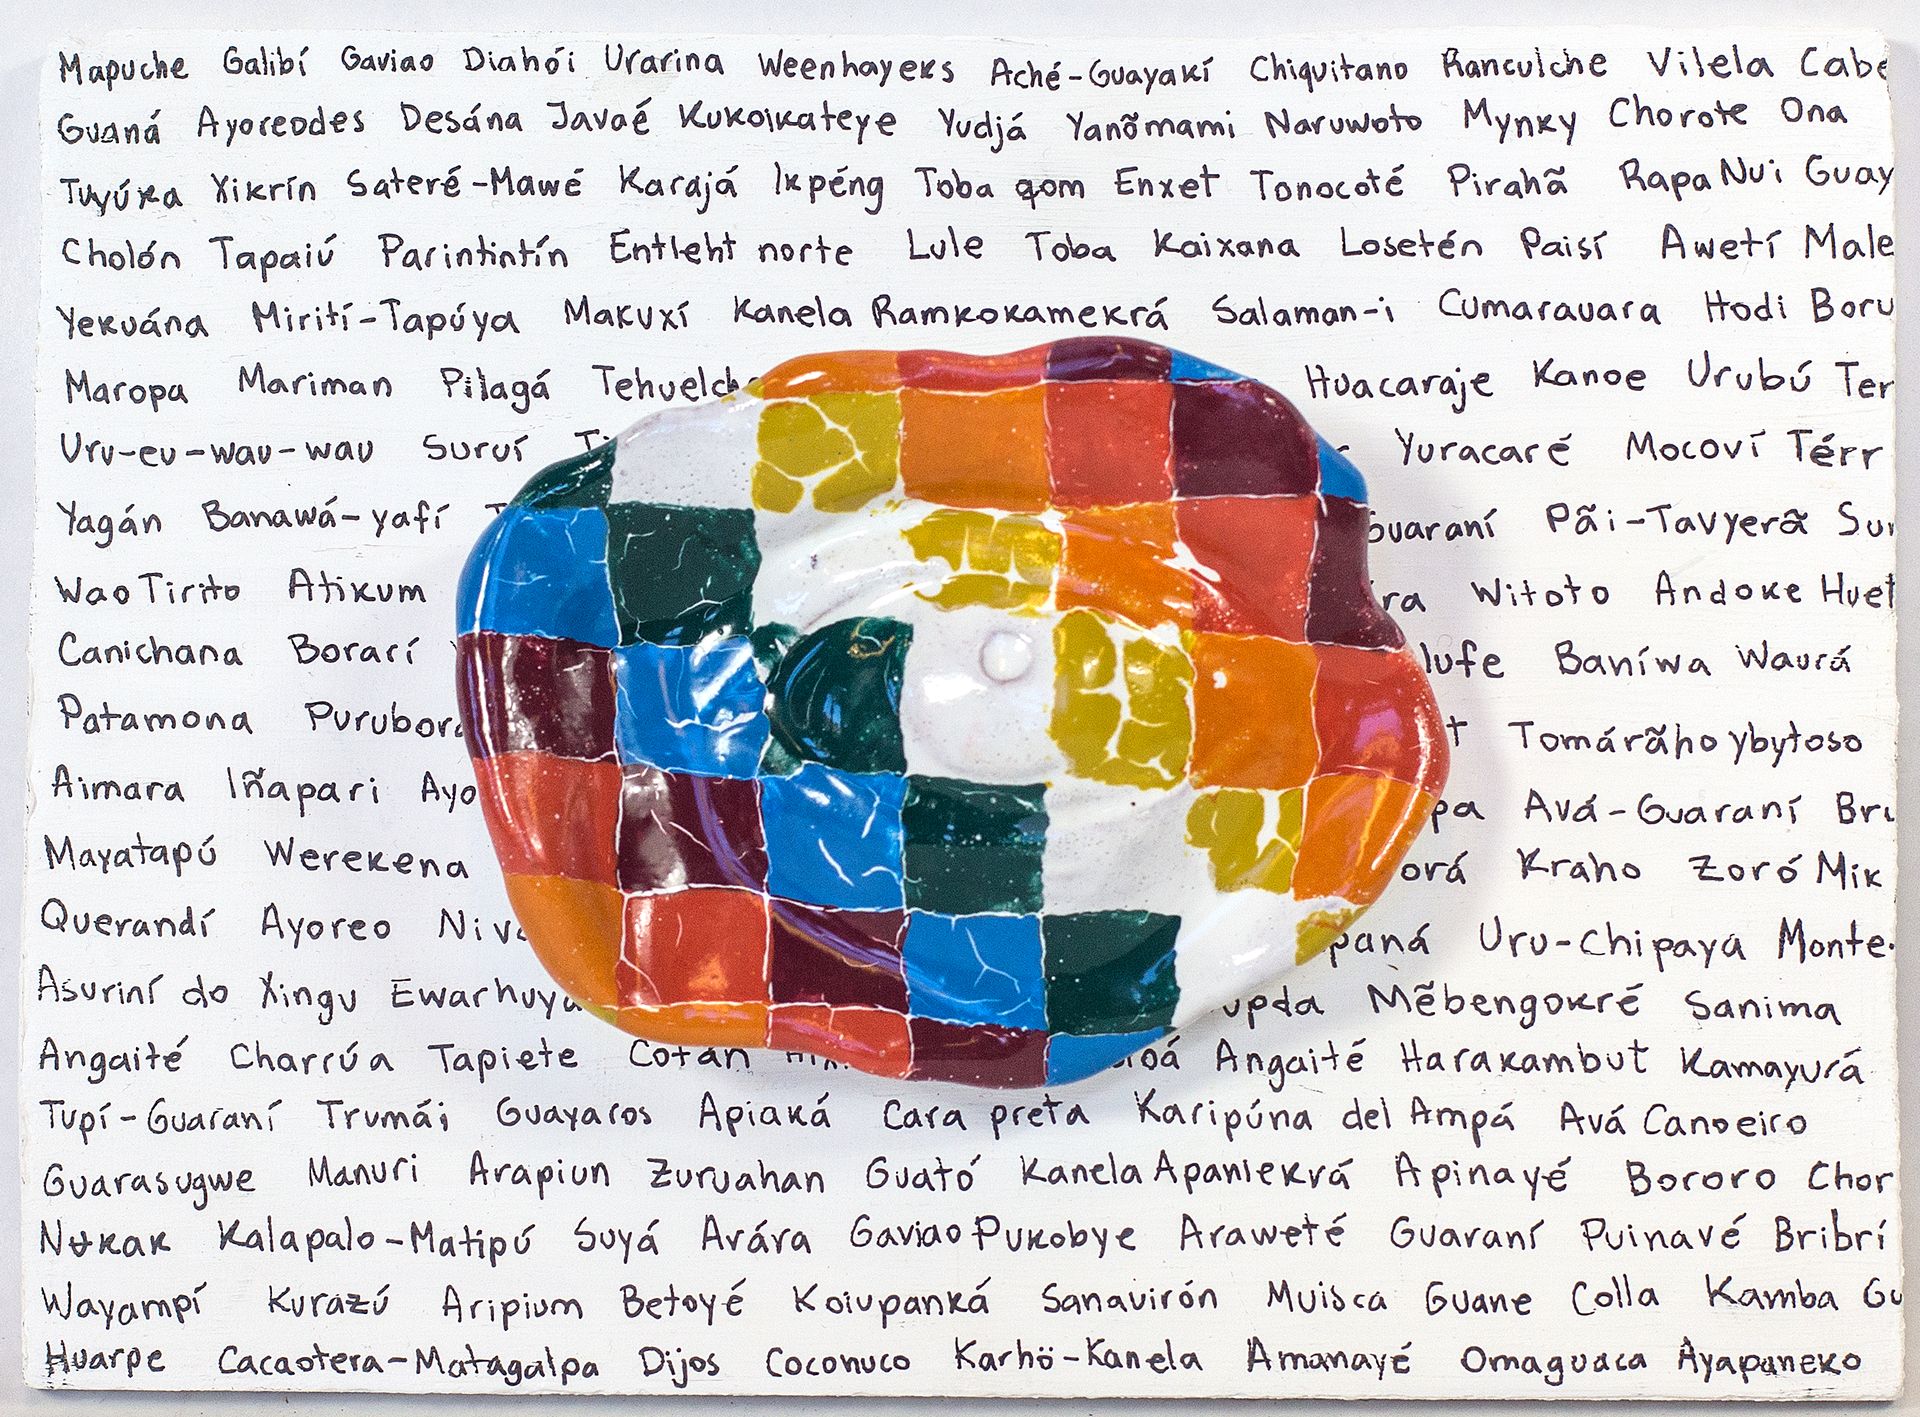 Mapuche Galibí Gaviao Diahói Urarina Weenhayeks Aché-Guayakí Chiquitano Ranculche Vilela Cabe
Guaná Ayoreodes Desána Javaé Kukoikateye Yudjá Yanõmami Naruwoto Mynky Chorote Ona
Tuyúka Xikrín Sateré-Mawé Karajá Ikpéng Toba qom Enxet Tonocoté Pirahã Rapa Nui Guay
Cholón Tapaiú Parintintín Entleht norte Lule Toba Kaixana Losetén Paisí Awetí Male
Yekuána Mirití-Tapúya Makuxí Kanela Ramkokamekrá Salaman-i Cumarauara Hodi Boru
Maropa Mariman Pilagá Tehuelche Huacaraje Kanoe Urubú Ter
Uru-eu-wau-wau Suruí Yuracaré Mocoví Térr
Yagán Banawá-yafí Guaraní Pãi-Tavyerã Sur
Wao Tirito Atikum ra Witoto Andoke Huet
Canichana Borarí lufe Baníwa Waurá
Patamona Purubora t Tomárãho ybytoso
Aimara Iñapari Ayo pa Avá-Guaraní Bri
Mayatapú Werekena orá Kraho Zoró Mik
Querandí Ayoreo Niva paná Uru-chipaya Monte
Asuriní do Xingu Ewarhuya upda Mẽbengokré Sanima
Angaité Charrúa Tapiete Cotán oá Angaité Harakambut Kamayurá
Tupí-Guaraní Trumái Guayaros Apiaká Cara preta Karipúna del Ampá Avá Canoeiro
Guarasugwe Manuri Arapiun Zuruahan Guató Kanela Apaniekrá Apinayé Bororo Chor
Nʉkak Kalapalo-Matipú Suyá Arára Gaviao Pukobye Araweté Guaraní Puinavé Bribrí
Wayampí Kurazú Aripium Betoyé Koiupanká Sanavirón Muisca Guane Colla Kamba Gu
Huarpe Cacaotera-Matagalpa Dijos Coconuco Karhö-Kanela Amanayé Omaguaca Ayapaneko